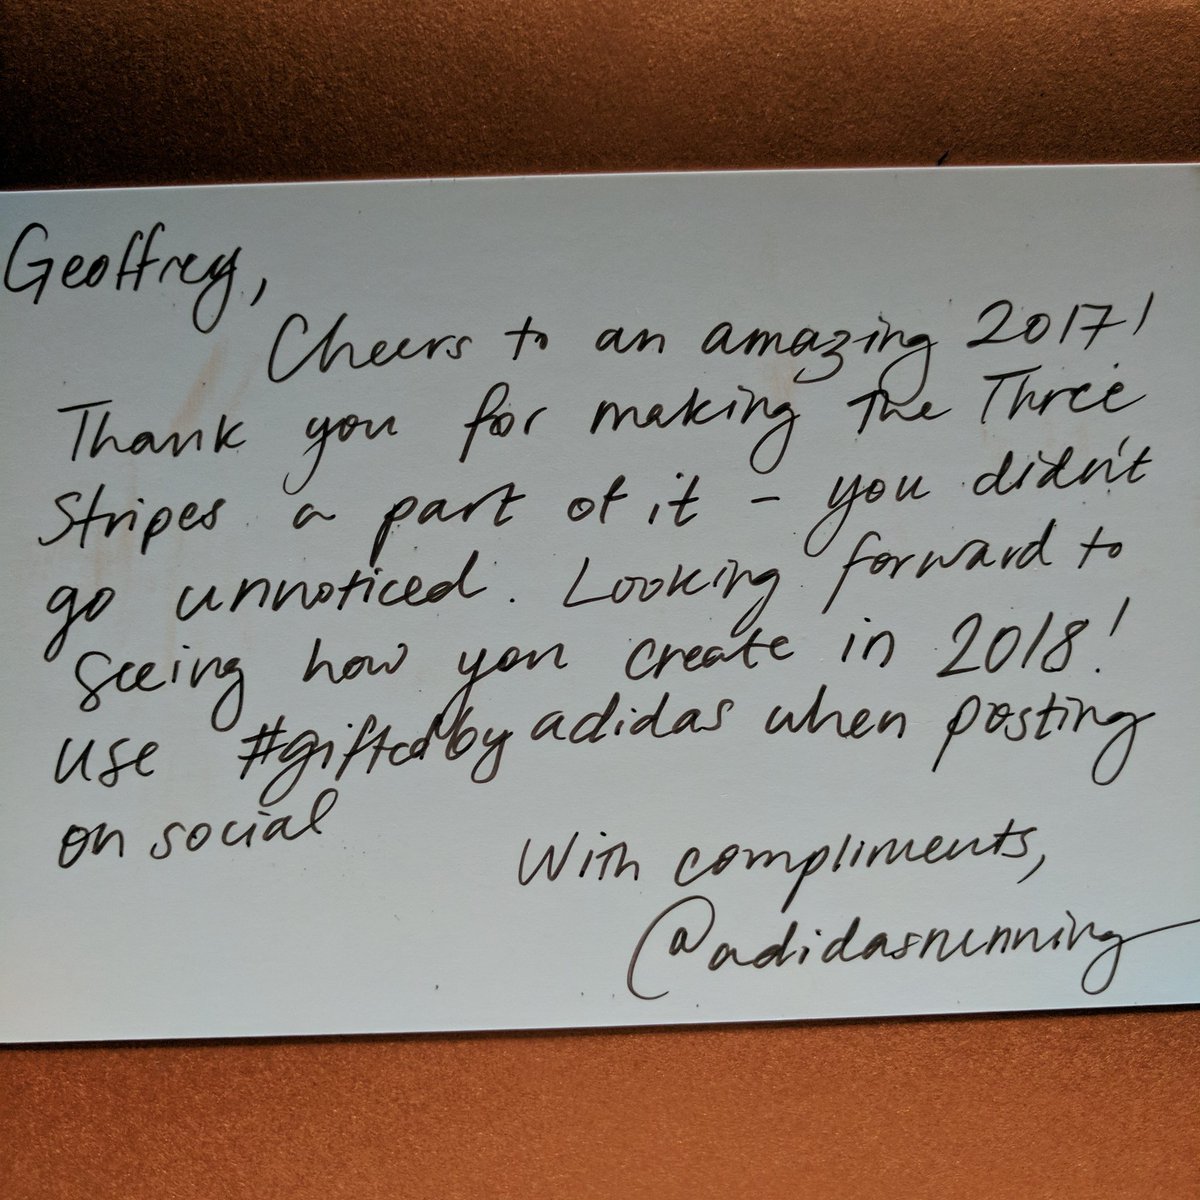 Geoffrey,
Cheers to an amazing 2017!
Thank you for making the Three
Stripes a part of it - you didn't
go unnoticed. Looking forward to
seeing how you create in 2018!
Use #giftedbyadidas when posting
on social
With compliments,
@adidasrunning